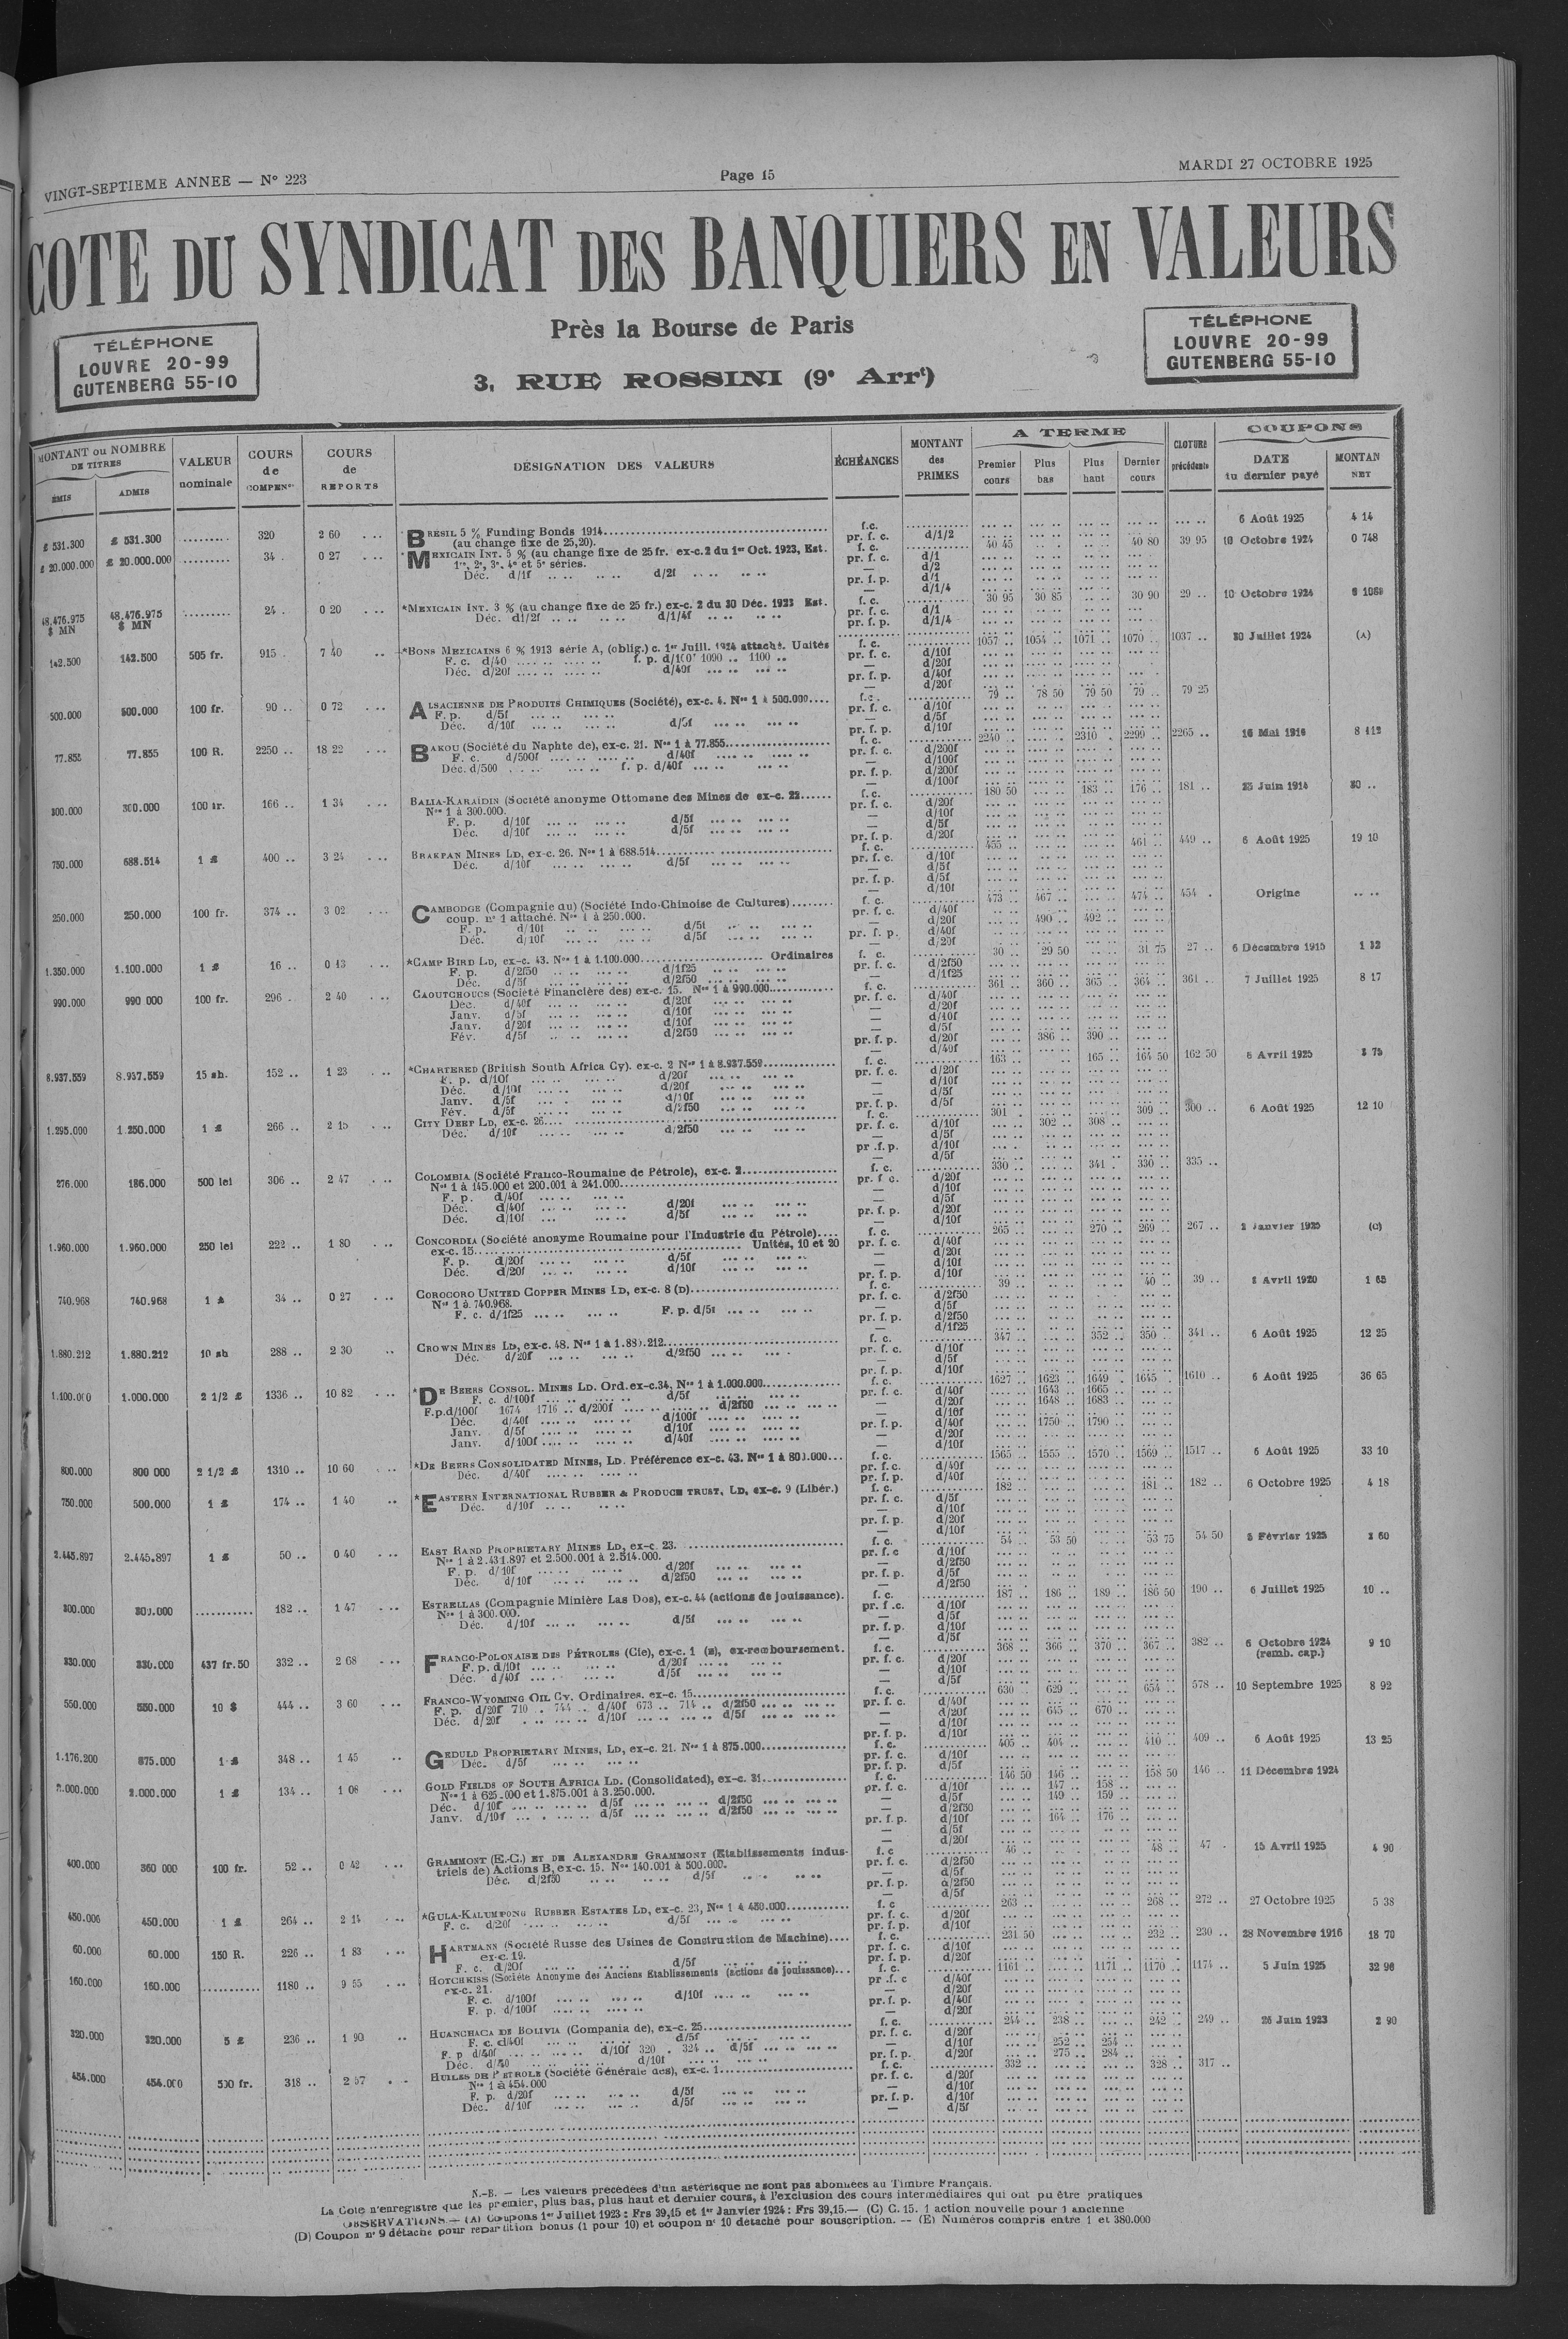 VINGT-SEPTIEME ANNEE — N° 223
Page 15
MARDI 27 OCTOBRE 1925
COTE DU SYNDICAT DES BANQUIERS EN VALEURS
Près la Bourse de Paris
3, RUE ROSSINI (9e Arrt)
TÉLÉPHONE
LOUVRE 20-99
GUTENBERG 55-10
TÉLÉPHONE
LOUVRE 20-99
GUTENBERG 55-10
MONTANT ou NOMBRE DE TITRES
ÉMIS
ADMIS
VALEUR nominale
COURS de COMPENon
COURS de REPORTS
DÉSIGNATION DES VALEURS
ÉCHÉANCES
MONTANT des PRIMES
A TERME
Premier cours
Plus bas
Plus haut
Dernier cours
CLOTURE précédente
COUPONS
DATE du dernier payé
MONTAN NET
£ 531.300 £ 531.300 320 2 60 BRESIL 5 % Funding Bonds 1914 f.c. 6 Août 1925 4 14
(au change fixe de 25,20). pr. f. c. d/1/2
£ 20.000.000 £ 20.000.000 34 0 27 *MEXICAIN INT. 5 % (au change fixe de 25 fr. ex-c. 2 du 1er Oct. 1923, Est. f. c. 40 45 40 80 39 95 10 Octobre 1924 0 748
1re, 2e, 3e, 4e et 5e séries. pr. f. c. d/1
Déc. d/1f d/2f — d/2
pr. f. p. d/1
— d/1/4
48.476.975 $ MN 48.476.975 $ MN 24 0 20 *MEXICAIN INT. 3 % (au change fixe de 25 fr.) ex-c. 2 du 30 Déc. 1923 Est. f. c. 30 95 30 85 30 90 29 10 Octobre 1924
Déc. d1/2f d/1/4f pr. f. c. d/1
pr. f. p. d/1/4
142.500 142.500 505 fr. 915 7 40 *BONS MEXICAINS 6 % 1913 série A, (oblig.) c. 1er Juill. 1924 attaché. Unités f. c. 1057 1054 1071 1070 1037 30 Juillet 1924 (A)
F. c. d/40 f. p. d/100f 1090 1100 pr. f. c. d/10f
Déc. d/20f d/40f — d/20f
pr. f. p. d/40f
— d/20f
500.000 500.000 100 fr. 90 0 72 ALSACIENNE DE PRODUITS CHIMIQUES (Société), ex-c. 4. Nos 1 à 500.000 f.c. 79 78 50 79 50 79 79 25
F. p. d/5f pr. f. c. d/10f
Déc. d/10f d/5f — d/5f
pr. f. p. d/10f
77.855 77.855 100 R. 2250 18 22 BAKOU (Société du Naphte de), ex-c. 21. Nos 1 à 77.855 f. c. 2240 2310 2299 2265 16 Mai 1916 8 112
F. c. d/500f d/40f pr. f. c. d/200f
Déc. d/500 f. p. d/40f — d/100f
pr. f. p. d/200f
— d/100f
300.000 300.000 100 fr. 166 1 34 BALIA-KARAÏDIN (Société anonyme Ottomane des Mines de ex-c. 22 f.c. 180 50 183 176 181 25 Juin 1914 30
Nos 1 à 300.000. pr. f. c. d/20f
F. p. d/10f d/5f — d/10f
Déc. d/10f d/5f — d/5f
pr. f. p. d/20f
750.000 688.514 1 £ 400 3 24 BRAKPAN MINES LD, ex-c. 26. Nos 1 à 688.514 f. c. 455 461 449 6 Août 1925 19 10
Déc. d/10f d/5f pr. f. c. d/10f
— d/5f
pr. f. p. d/5f
— d/10f
250.000 250.000 100 fr. 374 3 02 CAMBODGE (Compagnie du) (Société Indo-Chinoise de Cultures) f. c. 473 467 474 454 Origine
coup. n° 1 attaché. Nos 1 à 250.000. pr. f. c. d/40f
F. p. d/10f d/5f — d/20f 490 492
Déc. d/10f d/5f pr. f. p. d/40f
— d/20f
1.350.000 1.100.000 1 £ 16 0 13 *CAMP BIRD LD, ex-c. 43. Nos 1 à 1.100.000 Ordinaires f. c. 30 29 50 31 75 27 6 Décembre 1915 1 32
F. p. d/2f50 d/1f25 pr. f. c. d/2f50
Déc. d/5f d/2f50 — d/1f25
990.000 990 000 100 fr. 296 2 40 CAOUTCHOUCS (Société Financière des) ex-c. 15. Nos 1 à 990.000 f. c. 361 360 365 364 361 7 Juillet 1925 8 17
Déc. d/40f d/20f pr. f. c. d/40f
Janv. d/5f d/10f — d/20f
Janv. d/20f d/10f — d/10f
Fév. d/5f d/2f50 — d/5f
pr. f. p. d/20f 386 390
— d/40f
8.937.559 8.937.559 15 sh. 152 1 23 *CHARTERED (British South Africa Cy). ex-c. 2 Nos 1 à 8.937.559 f. c. 163 165 164 50 162 50 Avril 1925 75
F. p. d/10f d/20f pr. f. c. d/20f
Déc. d/10f d/20f — d/10f
Janv. d/5f d/10f — d/5f
Fév. d/5f d/2f50 pr. f. p. d/5f
1.295.000 1.250.000 1 £ 266 2 15 CITY DEEP LD, ex-c. 26 f. c. 301 309 300 6 Août 1925 12 10
Déc. d/10f d/2f50 pr. f. c. d/10f 302 308
— d/5f
pr .f. p. d/10f
— d/5f
276.000 186.000 500 lei 306 2 47 COLOMBIA (Société Franco-Roumaine de Pétrole), ex-c. 2 f. c. 330 341 330 335
Nos 1 à 145.000 et 200.001 à 241.000 pr. f c. d/20f
F. p. d/40f — d/10f
Déc. d/40f d/20f — d/5f
Déc. d/10f d/5f pr. f. p. d/20f
— d/10f
1.960.000 1.960.000 250 lei 222 1 80 CONCORDIA (Société anonyme Roumaine pour l'Industrie du Pétrole) f. c. 265 270 269 267 2 Janvier 1925 (C)
ex-c. 15 Unités, 10 et 20 pr. f. c. d/40f
F. p. d/20f d/5f — d/20f
Déc. d/20f d/10f — d/10f
pr. f. p. d/10f
740.968 740.968 1 £ 34 0 27 COROCORO UNITED COPPER MINES LD, ex-c. 8 (D) f. c. 39 40 39 Avril 1920 1 65
Nos 1 à 740.968. pr. f. c. d/2f50
F. c. d/1f25 F. p. d/5f — d/5f
pr. f. p. d/2f50
— d/1f25
1.880.212 1.880.212 10 sh 288 2 30 CROWN MINES LD, ex-c. 48. Nos 1 à 1.880.212 f. c. 347 352 350 341 6 Août 1925 12 25
Déc. d/20f d/2f50 pr. f. c. d/10f
— d/5f
pr. f. p. d/10f
1.100.000 1.000.000 2 1/2 £ 1336 10 82 *DE BEERS CONSOL. MINES LD. Ord. ex-c.34, Nos 1 à 1.000.000 f. c. 1627 1623 1649 1645 1610 6 Août 1925 36 65
F. c. d/100f d/5f pr. f. c. d/40f 1643 1665
F.p.d/100f 1674 1716 d/200f d/2f50 — d/20f 1648 1683
Déc. d/40f d/100f — d/10f
Janv. d/5f d/10f pr. f. p. d/40f 1750 1790
Janv. d/100f d/40f — d/20f
— d/10f
800.000 800 000 2 1/2 £ 1310 10 60 *DE BEERS CONSOLIDATED MINES, LD. Préférence ex-c. 43. Nos 1 à 800.000 f. c. 1565 1555 1570 1569 1517 6 Août 1925 33 10
Déc. d/40f pr. f. c. d/40f
pr. f. p. d/40f
750.000 500.000 1 £ 174 1 40 *EASTERN INTERNATIONAL RUBBER & PRODUCE TRUST, LD, ex-c. 9 (Libér.) f. c. 182 181 182 6 Octobre 1925 4 18
Déc. d/10f pr. f. c. d/5f
— d/10f
pr. f. p. d/20f
— d/10f
2.445.897 2.445.897 1 £ 50 0 40 EAST RAND PROPRIETARY MINES LD, ex-c. 23. f. c. 54 53 50 53 75 54 50 Février 1923 60
Nos 1 à 2.431.897 et 2.500.001 à 2.514.000. pr. f. c d/10f
F. p. d/10f d/20f — d/2f50
Déc. d/10f d/2f50 pr. f. p. d/5f
— d/2f50
300.000 300.000 182 1 47 ESTRELLAS (Compagnie Minière Las Dos), ex-c. 44 (actions de jouissance). f. c. 187 186 189 186 50 190 6 Juillet 1925 10
Nos 1 à 300.000. pr. f .c. d/10f
Déc. d/10f d/5f — d/5f
pr. f. p. d/10f
— d/5f
330.000 330.000 437 fr.50 332 2 68 FRANCO-POLONAISE DES PÉTROLES (Cie), ex-c. 1 (E), ex-remboursement. f. c. 368 366 370 367 382 6 Octobre 1924 9 10
F. p. d/10f d/20f pr. f. c. d/20f (remb. cap.)
Déc. d/40f d/5f — d/10f
— d/5f
550.000 550.000 10 $ 444 3 60 FRANCO-WYOMING OIL Cy. Ordinaires. ex-c. 15 f. c. 630 629 654 578 10 Septembre 1925 8 92
F. p. d/20f 710 744 d/40f 673 714 d/2f50 pr. f. c. d/40f
Déc. d/20f d/10f d/5f — d/20f 645 670
— d/10f
pr. f. p. d/10f
1.176.200 875.000 1 £ 348 1 45 GEDULD PROPRIETARY MINES, LD, ex-c. 21. Nos 1 à 875.000 f. c. 405 404 410 409 6 Août 1925 13 25
Déc. d/5f pr. f. c. d/10f
pr. f. p. d/5f
2.000.000 2.000.000 1 £ 134 1 08 GOLD FIELDS OF SOUTH AFRICA LD. (Consolidated), ex-c. 31 f. c. 146 50 146 158 50 146 11 Décembre 1924
Nos 1 à 625.000 et 1.875.001 à 3.250.000. pr. f. c. d/10f 147 158
Déc. d/10f d/5f d/2f50 — d/5f 149 159
Janv. d/10f d/5f d/2f50 — d/2f50
pr. f. p. d/10f 164 176
— d/5f
— d/20f
400.000 360 000 100 fr. 52 0 42 GRAMMONT (E.-C.) ET DE ALEXANDRE GRAMMONT (Etablissements indus- f. c 46 48 47 15 Avril 1925 4 90
triels de) Actions B, ex-c. 15. Nos 140.001 à 500.000. pr. f. c. d/2f50
Déc. d/2f50 d/5f — d/5f
pr. f. p. d/2f50
— d/5f
450.006 450.000 1 £ 264 2 14 *GULA-KALUMPONG RUBBER ESTATES LD, ex-c. 23, Nos 1 à 450.000 f. c 263 268 272 27 Octobre 1925 5 38
F. c. d/20f d/5f pr. f. c. d/20f
pr. f. p. d/10f
60.000 60.000 150 R. 226 1 83 HARTMANN (Société Russe des Usines de Construction de Machine) f. c. 231 50 232 230 28 Novembre 1916 18 70
ex-c. 19. pr. f. c. d/10f
F. c. d/20f d/5f pr. f. p. d/20f
160.000 160.000 1180 9 55 HOTCHKISS (Société Anonyme des Anciens Etablissements (actions de jouissance) f. c. 1161 1171 1170 1174 5 Juin 1925 32 96
ex-c. 21. pr .f. c d/40f
F. c. d/100f d/10f — d/20f
F. p. d/100f pr. f. p. d/40f
— d/20f
320.000 320.000 5 £ 236 1 90 HUANCHACA DE BOLIVIA (Compania de), ex-c. 25 f. c. 244 238 242 249 26 Juin 1923 2 90
F. c. d/40f d/5f pr. f. c. d/20f
F. p d/40f d/10f 320 324 d/5f — d/10f 252 254
Déc. d/40 d/10f pr. f. p. d/20f 275 284
454.000 454.000 500 fr. 318 2 57 HUILES DE PETROLE (Société Générale des), ex-c. 1 f. c. 332 328 317
Nos 1 à 454.000 pr. f. c. d/20f
F. p. d/20f d/5f — d/10f
Déc. d/10f d/5f pr. f. p. d/10f
— d/5f
N.-B. — Les valeurs précédées d'un astérisque ne sont pas abonnées au Timbre Français.
La Cote n'enregistre que les premier, plus bas, plus haut et dernier cours, à l'exclusion des cours intermédiaires qui ont pu être pratiques
OBSERVATIONS — (A) Coupons 1er Juillet 1923 : Frs 39,15 et 1er Janvier 1924 : Frs 39,15.— (C) C. 15. 1 action nouvelle pour 1 ancienne
(D) Coupon n° 9 détaché pour repartition bonus (1 pour 10) et coupon n° 10 détaché pour souscription. — (E) Numéros compris entre 1 et 380.000